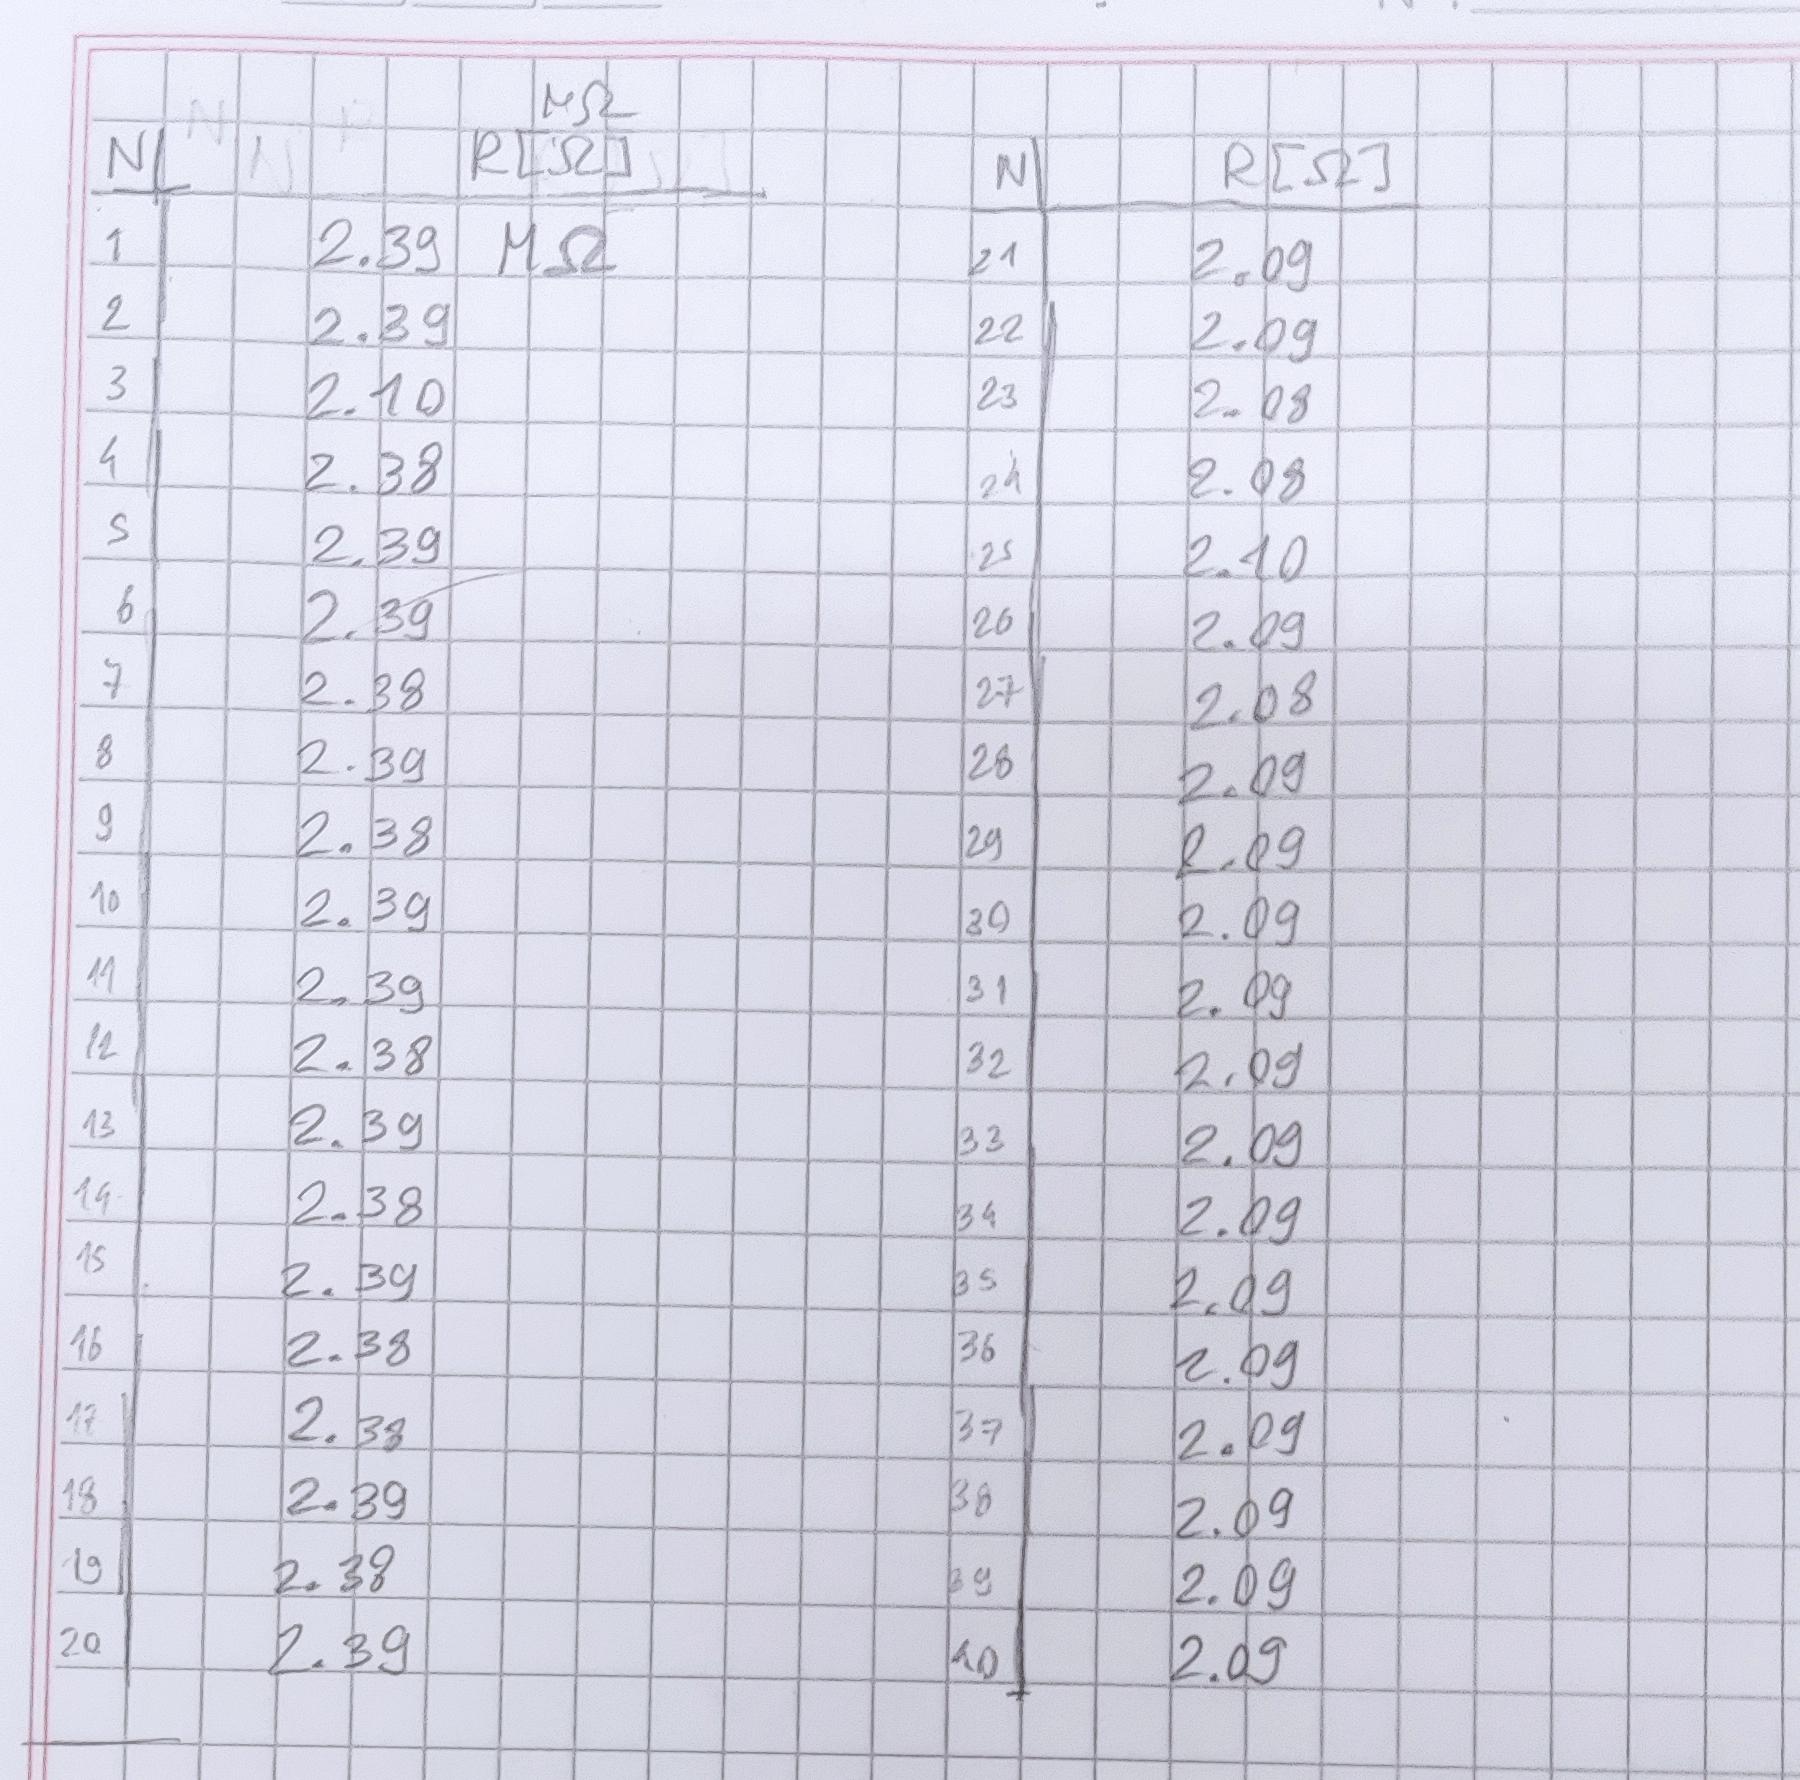 MΩ
N R[Ω]
1 2.39 MΩ
2 2.39
3 2.10
4 2.38
5 2.39
6 2.39
7 2.38
8 2.39
9 2.38
10 2.39
11 2.39
12 2.38
13 2.39
14 2.38
15 2.39
16 2.38
17 2.38
18 2.39
19 2.38
20 2.39
N R[Ω]
21 2.09
22 2.09
23 2.08
24 2.08
25 2.10
26 2.09
27 2.08
28 2.09
29 2.09
30 2.09
31 2.09
32 2.09
33 2.09
34 2.09
35 2.09
36 2.09
37 2.09
38 2.09
39 2.09
40 2.09